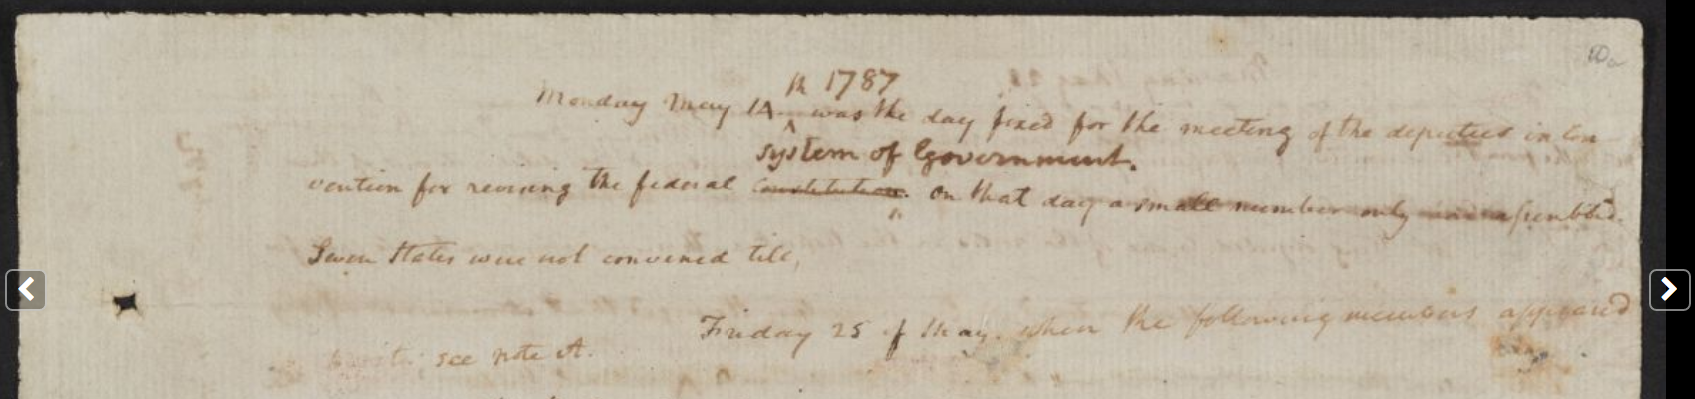 th 1787
Monday May 14 was the day fixed for the meeting of the deputies in Con
system of Government.
vention for revising the federal Constitution. on that day a small number only assembled.
Seven States were not convened till,
Friday 25 of May. when the following members appeared
see note A.